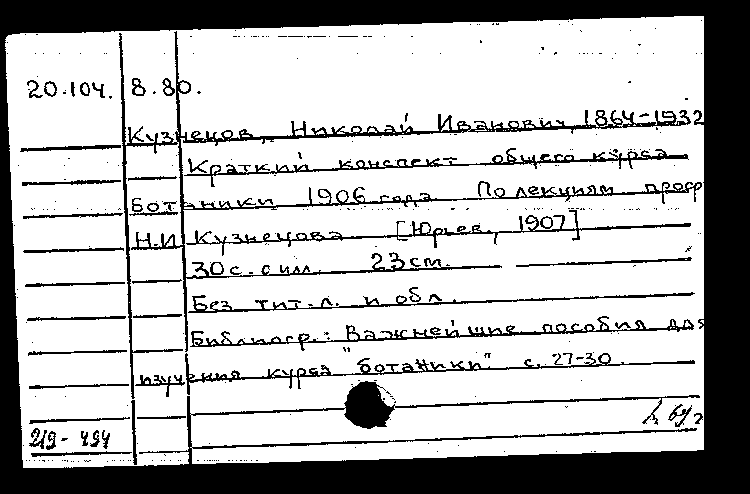 20.104. 8.80.
Кузнецов, Николай Иванович, 1864-1932
Краткий конспект общего курса
ботаники 1906 года. По лекциям проф
Н.И Кузнецова [Юрьев, 1907]
30 с. с илл. 23 см.
Без тит. л. и обл.
Библиогр.: Важнейшие пособия для
изучения курса "ботаники" с. 27-30.
219-494